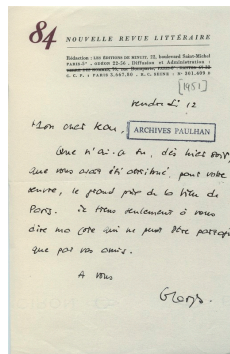 84 NOUVELLE REVUE LITTÉRAIRE
Rédaction : LES ÉDITIONS DE MINUIT, 22, boulevard Saint-Michel
PARIS-6e . ODÉON 22-56 . Diffusion et Administration :
C. C. P. : PARIS 5,667.90 . R. C. SEINE : N° 301.409 B
[1951]
vendredi 12
Mon cher Jean,
ARCHIVES PAULHAN
Que n'ai-je su, dès hier soir,
que vous avait été attribué, pour votre
œuvre, le grand prix de la ville de
Paris. Je tiens seulement à vous
dire ma joie qui ne peut être partagée
que par vos amis.
A vous